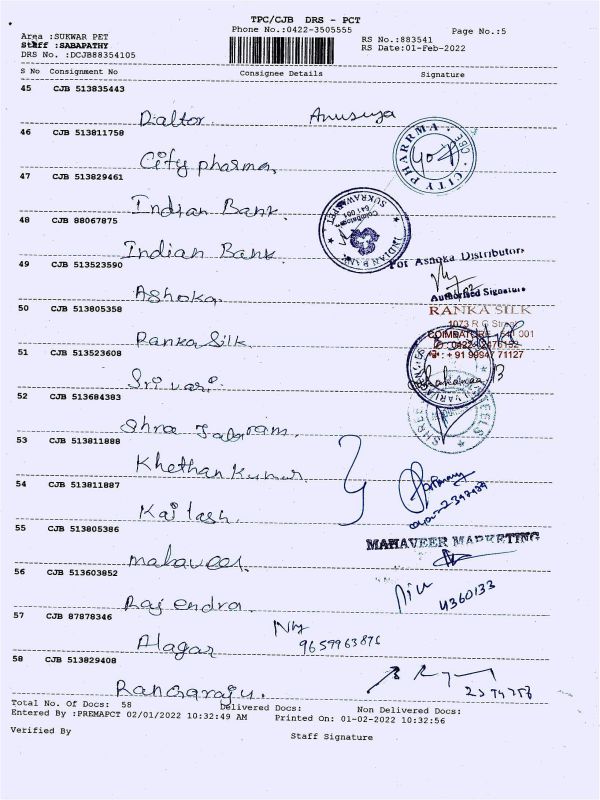 TPC/CJB DRS - PCT
Phone No.:0422-3505555
Page No.:5
Area :SUKWAR PET
Staff :SABAPATHY
DRS No. :DCJB88354105
RS No.:883541
RS Date:01-Feb-2022
S No Consignment No Consignee Details Signature
45 CJB 513835443
Daltor. Anusuya
46 CJB 513811758
City pharma,
CITY PHARRMA CBE
47 CJB 513829461
Indian Bank.
INDIAN BANK SUKRAWARPET Coimbatore 641 001
48 CJB 88067875
Indian Bank.
For Ashoka Distributors
49 CJB 513523590
Ashoka
Authorised Signature
50 CJB 513805358
RANKA SILK
1073 R G Street
COIMBATORE - 641 001
Ranka Silk
+ 91 99947 71127
51 CJB 513523608
Sri vari.
52 CJB 513684383
Shree
53 CJB 513811888
Khethan Kumar
54 CJB 513811887
Kailash.
MAHAVEER MARKETING
55 CJB 513805386
mahaveer.
56 CJB 513603852
4360133
Rajendra.
57 CJB 87878346
9659963876
Alagar
58 CJB 513829408
Rangaraju.
Total No. Of Docs: 58 Delivered Docs: Non Delivered Docs:
Entered By :PREMAPCT 02/01/2022 10:32:49 AM Printed On: 01-02-2022 10:32:56
Verified By
Staff Signature